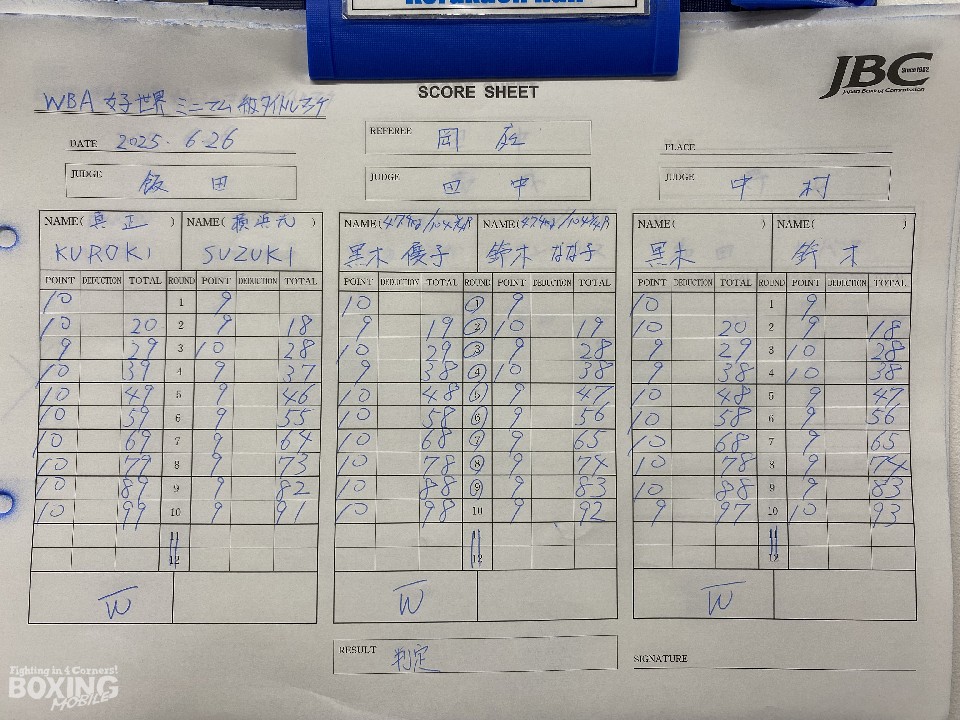 Korakuen Hall
JBC Since1952
Japan Boxing Commission
SCORE SHEET
WBA 女子世界ミニマム級タイトルマッチ
DATE 2025. 6.26
REFEREE 岡庭
PLACE
JUDGE 飯田
JUDGE 田中
JUDGE 中村
NAME( 真正 ) NAME( 横浜光 ) NAME(47.4kg/104 NAME(47.4kg/104 NAME( ) NAME( )
KUROKI SUZUKI 黒木 優子 鈴木 なな子 黒木 鈴木
POINT DEDUCTION TOTAL ROUND POINT DEDUCTION TOTAL POINT DEDUCTION TOTAL ROUND POINT DEDUCTION TOTAL POINT DEDUCTION TOTAL ROUND POINT DEDUCTION TOTAL
10 1 9 10 1 9 10 1 9
10 20 2 9 18 9 19 2 10 19 10 20 2 9 18
9 29 3 10 28 10 29 3 9 28 9 29 3 10 28
10 39 4 9 37 9 38 4 10 38 9 38 4 10 38
10 49 5 9 46 10 48 5 9 47 10 48 5 9 47
10 59 6 9 55 10 58 6 9 56 10 58 6 9 56
10 69 7 9 64 10 68 7 9 65 10 68 7 9 65
10 79 8 9 73 10 78 8 9 74 10 78 8 9 74
10 89 9 9 82 10 88 9 9 83 10 88 9 9 83
10 99 10 9 91 10 98 10 9 92 9 97 10 10 93
11 11 11
12 12 12
W W W
RESULT 判定
SIGNATURE
Fighting in 4 Corners!
BOXING
MOBILE